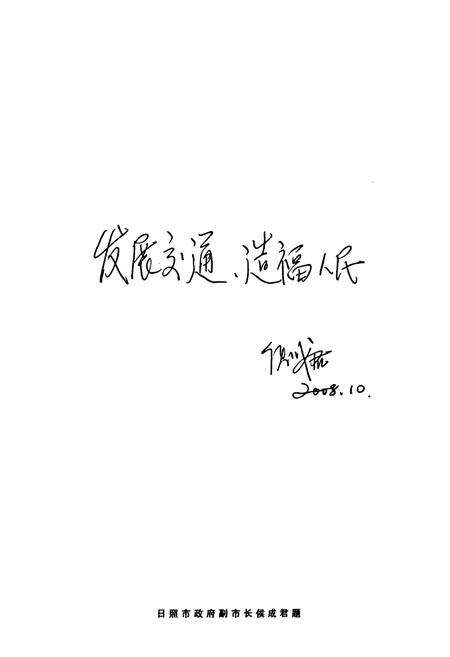 发展交通、造福人民
侯成君
2008.10.
日照市政府副市长侯成君题